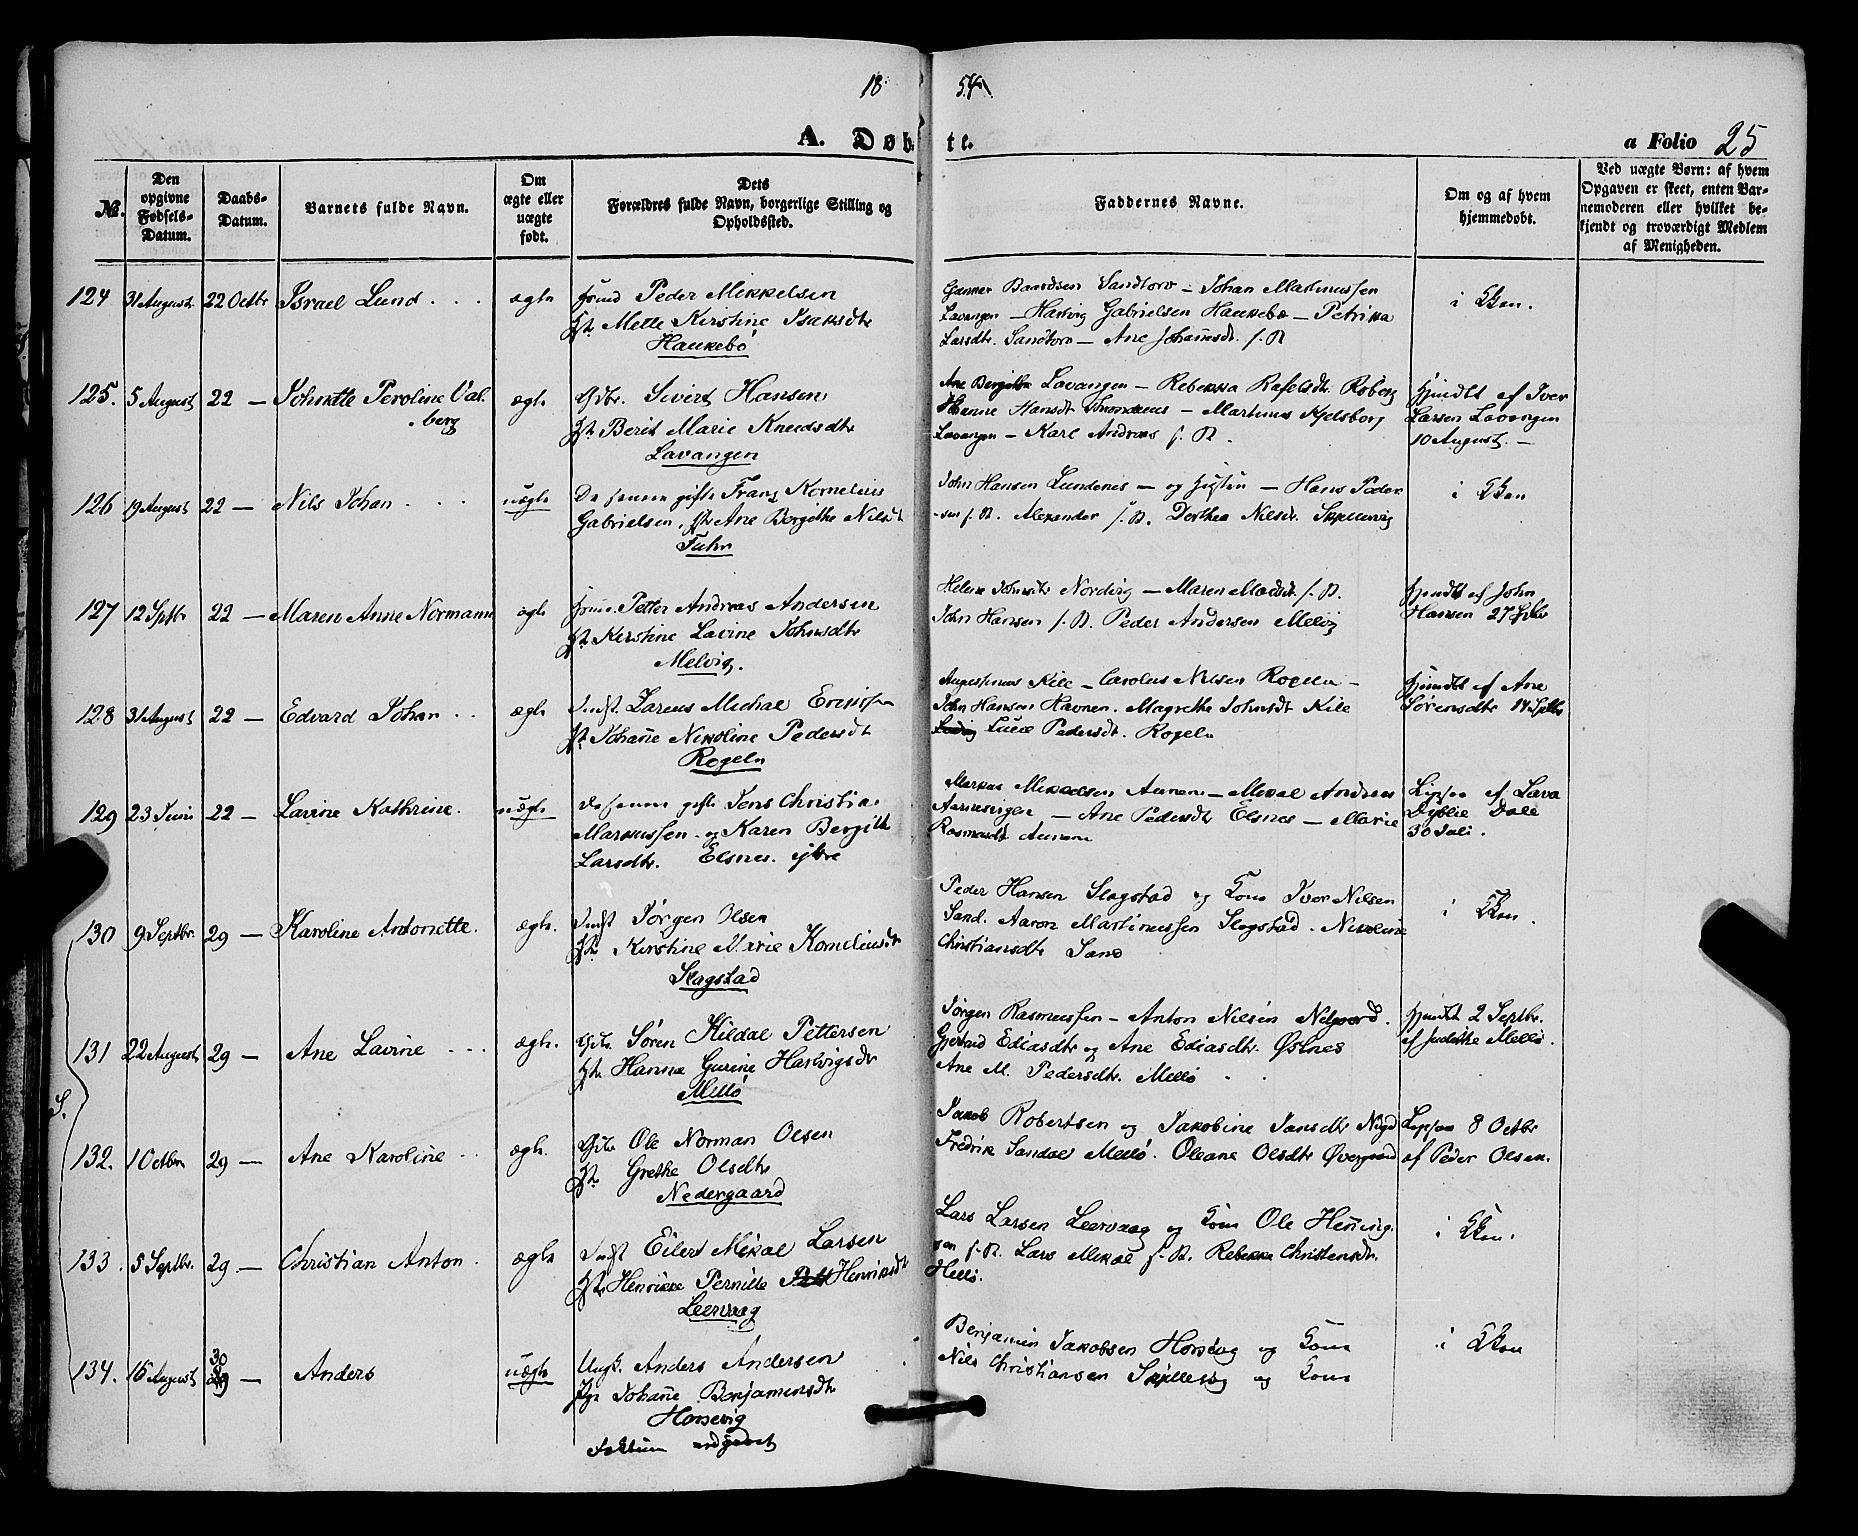 18 54.
A. Døbte. a Folio 25
No. Den opgivne Fødsels-Datum. Daabs-Datum. Barnets fulde Navn. Om ægte eller uægte født. Dets Forældres fulde Navn, borgerlige Stilling og Opholdssted. Faddernes Navne. Om og af hvem hjemmedøbt. Ved uægte Børn: af hvem Opgaven er skeet, enten Barnemoderen eller hvilket bekjendt og troværdigt Medlem af Menigheden.
124 31 August 22 Octbr Israel Lund ægte Peder Mikkelsen
Mette Kirstine Isaksdtr
Haukebø
Sandtorv – Johan Martinussen
Lavangen – Hartvig Gabrielsen Haukebø – Petrikka
Larsdtr. Sandtorv – Ane Johannesdtr. s. St.
i Kken.
125. 5 August 22 – Johnette Peroline Valberg ægte Gdbr. Sivert Hansen
Berit Marie Knudsdtr
Lavangen
Ane Bergitha Lavangen – Rebekka Rafelsdtr. Roberg
Hansdtr Trondenes – Martinus Kjelsberg
Lavangen – Karl Andreas s. St.
Hjmdbt af Iver
Larsen Lavangen
10 August. –
126 19 August 22 – Nils Johan uægte De senere gifte Frans Kornelius
Gabrielsen, Ane Bergithe Nilsdt
John Hansen Lundenes – og Hustru – Hans Peder
sen s. St. Alexander s. St. Dorthea Nilsdtr. Skjellesvig
i Kken
127 12 Sptbr 22 – Maren Anne Normann ægte Petter Andreas Andersen
Kirstine Lavine Johnsdtr
Melvig.
Helene Johnsdtr Nordvig – Maren Madsdt s. St.
John Hansen s. St. Peder Andersen Melvig
hjmdbt af John
Hansen 27 Sptbr
128 31 August 22 – Edvard Johan ægte Indst Larens Michal Erikssen
Johanne Nikoline Pedersdt
Rogeln
Augustinus Kile – Carolus Nilsen Rogeln –
John Hansen Havnen. Magrethe Johnsdt Kile
Lucie Pedersdt. Rogeln
hjmdbt af Ane
Sørensdtr 14 Sptbr
129 23 Juni 22 – Lavine Kathrine. uægte de senere gifte Jens Christian
Markussen og Karen Bergith
Larsdtr. Elsnes. ytre
Markus Mikkelsen Aunen – Mikal Andreas
– Ane Pedersdt Elsnes – Marie
Rasmusdt Aunen
af Lava
Dyblie Dale
30 Juli.
130 9 Septbr. 29 – Karoline Antonette. ægte. Indst Jørgen Olsen
Kirstine Marie Korneliusdt
Slagstad
Peder Hansen Slagstad og Kone Iver Nilsen
Sand. Aaron Martinussen Slagstad. Nikoline
Christiansdtr Sand
i Kken.
S.
131 22 August 29 – Ane Lavine ægte. Gdbr. Søren Kildal Pettersen
Hanna Gurine Hartvigsdr
Mellø
Jørgen Rasmussen – Anton Nilsen Nedgaard.
Gjertrud Ediasdtr og Ane Ediasdtr. Østnes
Ane M. Pedersdtr. Mellø
hjmdbt 2 Septbr.
af Judithe Mellø.
132. 1 Octbr 29 – Ane Karoline ægte. Gdbr Ole Norman Olsen
Grethe Olsdtr
Nedergaard
Jakob Robertsen og Jakobine Jansdtr Nedgd
Fredrik Sandal Mellø. Oleane Olsdtr Øvergaard
8 Octbr
af Peder Olsen.
133. 5 Septbr. 29 – Christian Anton. ægte Indst Eilert Mikal Larsen
Henrikke Pernille Henriksdt
Leervaag
Lars Larsen Leervaag og Kone Ole Henning-
sen s. St. Lars Mikal s. St. Rebekka Christensdr.
Mellø.
i Kken.
134. 16 August 30 29 – Anders uægte Ungk. Anders Andersen
Pige Johanne Benjaminsdtr
Horsevig
Benjamin Jakobsen Horsevig og Kone
Nils Christiansen Skjellesvig og Kone
i Kken